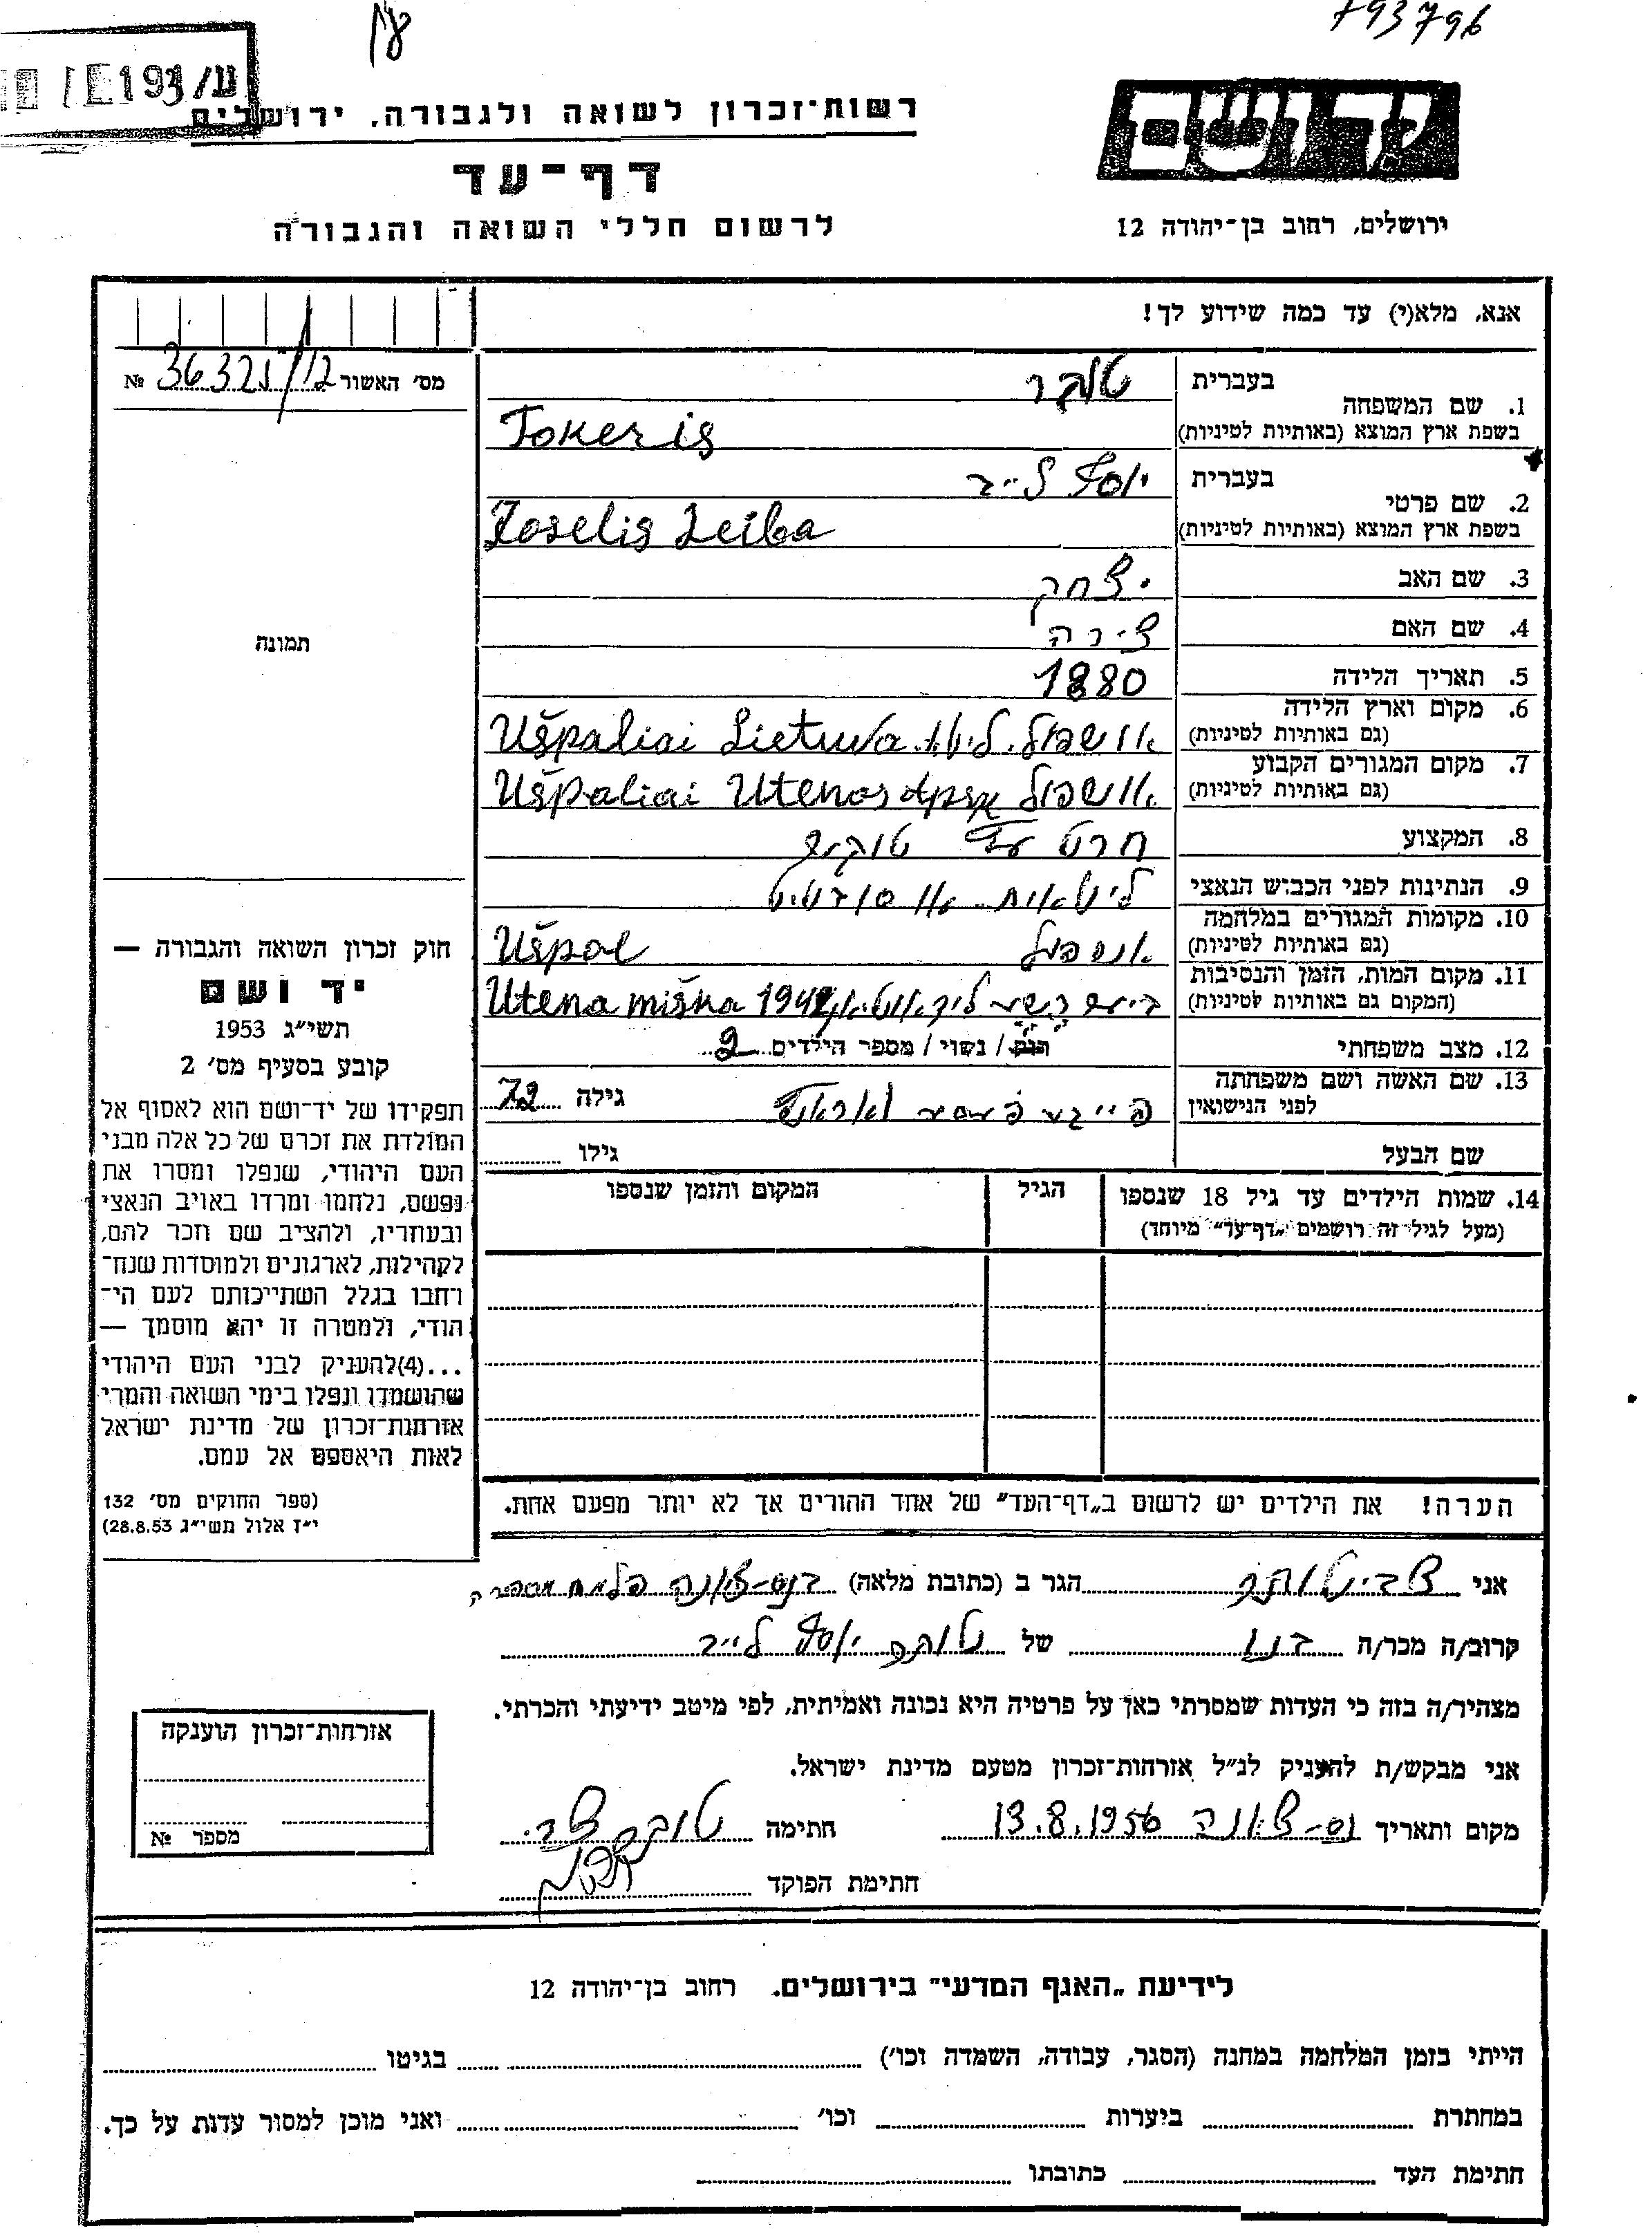 793796
ע/193
רשות־זכרון לשואה ולגבורה, ירושלים
דף־עד
לרשום חללי השואה והגבורה
יד ושם
ירושלים, רחוב בן־יהודה 12
אנא, מלא(י) עד כמה שידוע לך!
מס׳ האשור 36325/12 №
1. שם המשפחה בעברית טוקר
בשפת ארץ המוצא (באותיות לטיניות) Tokeris
2. שם פרטי בעברית יוסף לייב
בשפת ארץ המוצא (באותיות לטיניות) Joselis Leiba
3. שם האב יצחק
4. שם האם צירה
5. תאריך הלידה 1880
6. מקום וארץ הלידה (גם באותיות לטיניות) אושפול. ליטא. Ušpaliai Lietuva
7. מקום המגורים הקבוע (גם באותיות לטיניות) אושפול Ušpaliai Utenos apskr
8. המקצוע חרט עץ
9. הנתינות לפני הכבוש הנאצי ליטאית
10. מקומות המגורים במלחמה (גם באותיות לטיניות) אושפול Ušpol
11. מקום המות, הזמן והנסיבות (המקום גם באותיות לטיניות) Utena miška
12. מצב משפחתי רווק / נשוי / מספר הילדים 2
13. שם האשה ושם משפחתה לפני הנישואין גילה 72
שם הבעל גילו
14. שמות הילדים עד גיל 18 שנספו הגיל המקום והזמן שנספו
(מעל לגיל זה רושמים „דף־עד״ מיוחד)
הערה! את הילדים יש לרשום ב„דף־העד״ של אחד ההורים אך לא יותר מפעם אחת.
תמונה
חוק זכרון השואה והגבורה —
יד ושם
תשי״ג 1953
קובע בסעיף מס׳ 2
תפקידו של יד־ושם הוא לאסוף אל
המולדת את זכרם של כל אלה מבני
העם היהודי, שנפלו ומסרו את
נפשם, נלחמו ומרדו באויב הנאצי
ובעוזריו, ולהציב שם וזכר להם,
לקהילות, לארגונים ולמוסדות שנח־
רחבו בגלל השתייכותם לעם הי־
הודי, ולמטרה זו יהא מוסמך —
...(4)להעניק לבני העם היהודי
שהושמדו ונפלו בימי השואה והמרי
אזרחות־זכרון של מדינת ישראל
לאות היאספם אל עמם.
(ספר החוקים מס׳ 132
י״ז אלול תשי״ג 28.8.53)
אני צבי טוקר הגר ב (כתובת מלאה) בנס-ציונה
קרוב/ה מכר/ה בנו של טוקר יוסף לייב
מצהיר/ה בזה כי העדות שמסרתי כאן על פרטיה היא נכונה ואמיתית, לפי מיטב ידיעתי והכרתי.
אני מבקש/ת להעניק לנ״ל אזרחות־זכרון מטעם מדינת ישראל.
מקום ותאריך נס-ציונה 13.8.1956 חתימה טוקר צבי
חתימת הפוקד
אזרחות־זכרון הוענקה
מספר №
לידיעת „האגף המדעי״ בירושלים. רחוב בן־יהודה 12
הייתי בזמן המלחמה במחנה (הסגר, עבודה, השמדה וכו׳) בגיטו
במחתרת ביערות וכו׳ ואני מוכן למסור עדות על כך.
חתימת העד כתובתו